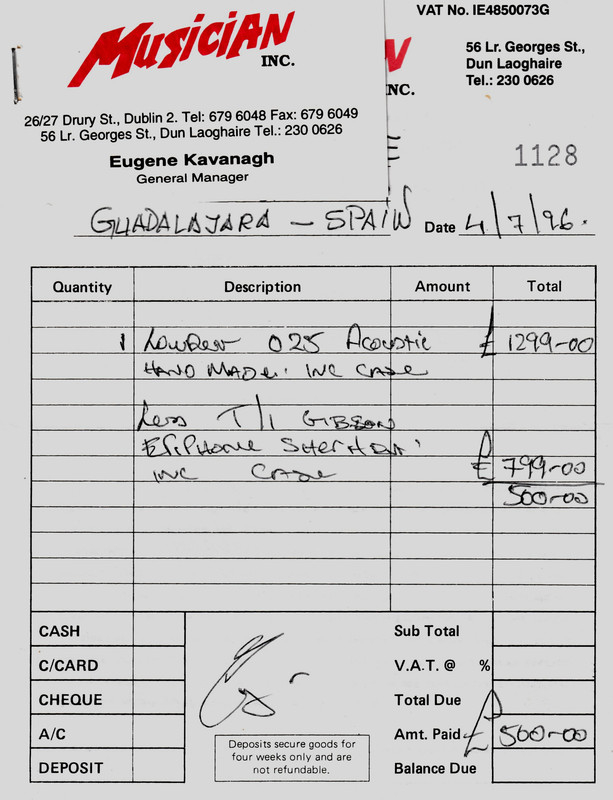 MUSICIAN
INC.
26/27 Drury St., Dublin 2. Tel: 679 6048 Fax: 679 6049
56 Lr. Georges St., Dun Laoghaire Tel.: 230 0626
Eugene Kavanagh
General Manager
VAT No. IE4850073G
56 Lr. Georges St.,
Dun Laoghaire
Tel.: 230 0626
N
NC.
1128
GUADALAJARA – SPAIN Date 4/7/96.
Quantity Description Amount Total
1 Lowden 025 Acoustic £ 1299-00
HAND MADE. INC CASE
Less T/I GIBSON
EPIPHONE SHERATON'
INC CASE £ 799-00
500-00
CASH Sub Total
C/CARD V.A.T. @ %
CHEQUE Total Due
A/C Amt. Paid £ 500-00
DEPOSIT Balance Due
Deposits secure goods for
four weeks only and are
not refundable.